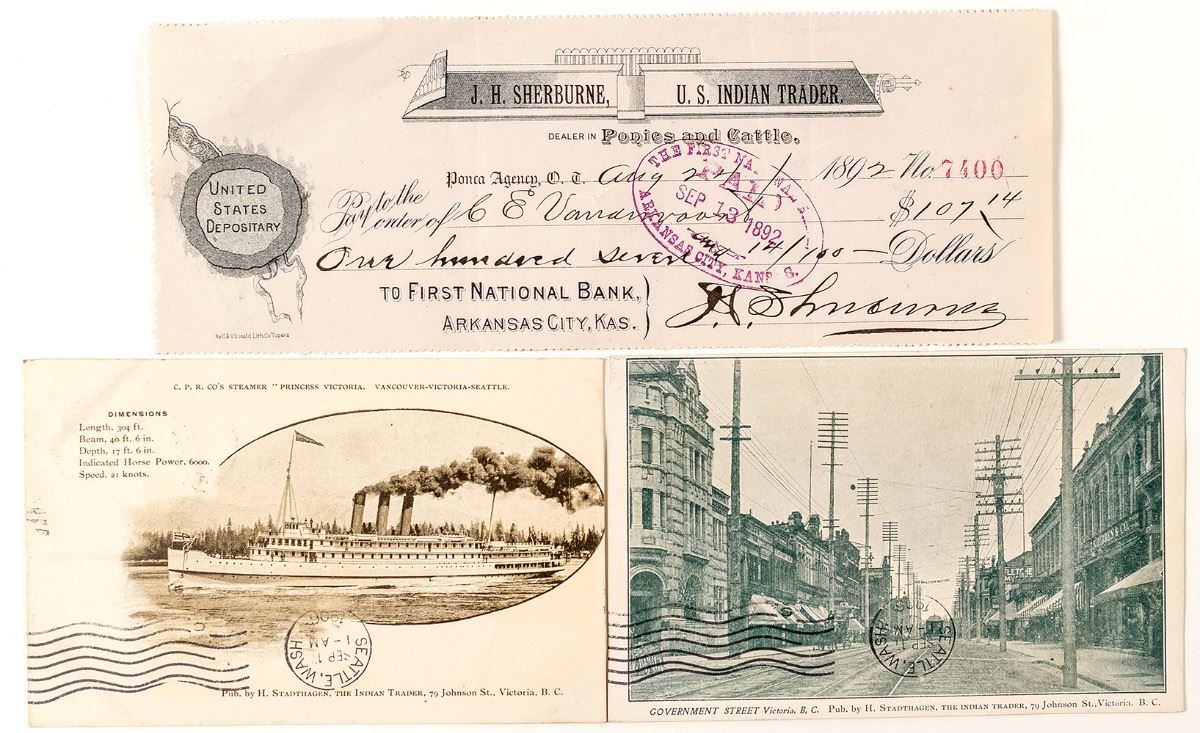 J. H. SHERBURNE, U. S. INDIAN TRADER.
DEALER IN Ponies and Cattle.
Ponca Agency, O. T. Aug 1892 No 7400
UNITED
STATES
DEPOSITARY
Pay to the
order of C E $107 14
One hundred Seven and 14/100 Dollars
TO FIRST NATIONAL BANK,
ARKANSAS CITY, KAS.
J H Sherburne
THE FIRST
PAID
SEP 13 1892
ARKANSAS CITY,
C. P. R. CO'S STEAMER "PRINCESS VICTORIA. VANCOUVER-VICTORIA-SEATTLE.
DIMENSIONS
Length, 304 ft.
Beam, 40 ft. 6 in.
Depth, 17 ft. 6 in.
Indicated Horse Power, 6000.
Speed, 21 knots.
SEATTLE, WASH
SEP 1
1-AM
1906
Pub. by H. STADTHAGEN, THE INDIAN TRADER, 79 Johnson St., Victoria, B. C.
SEATTLE, WASH
SEP
AM
1906
GOVERNMENT STREET Victoria, B. C. Pub. by H. STADTHAGEN, THE INDIAN TRADER, 79 Johnson St., Victoria. B. C.